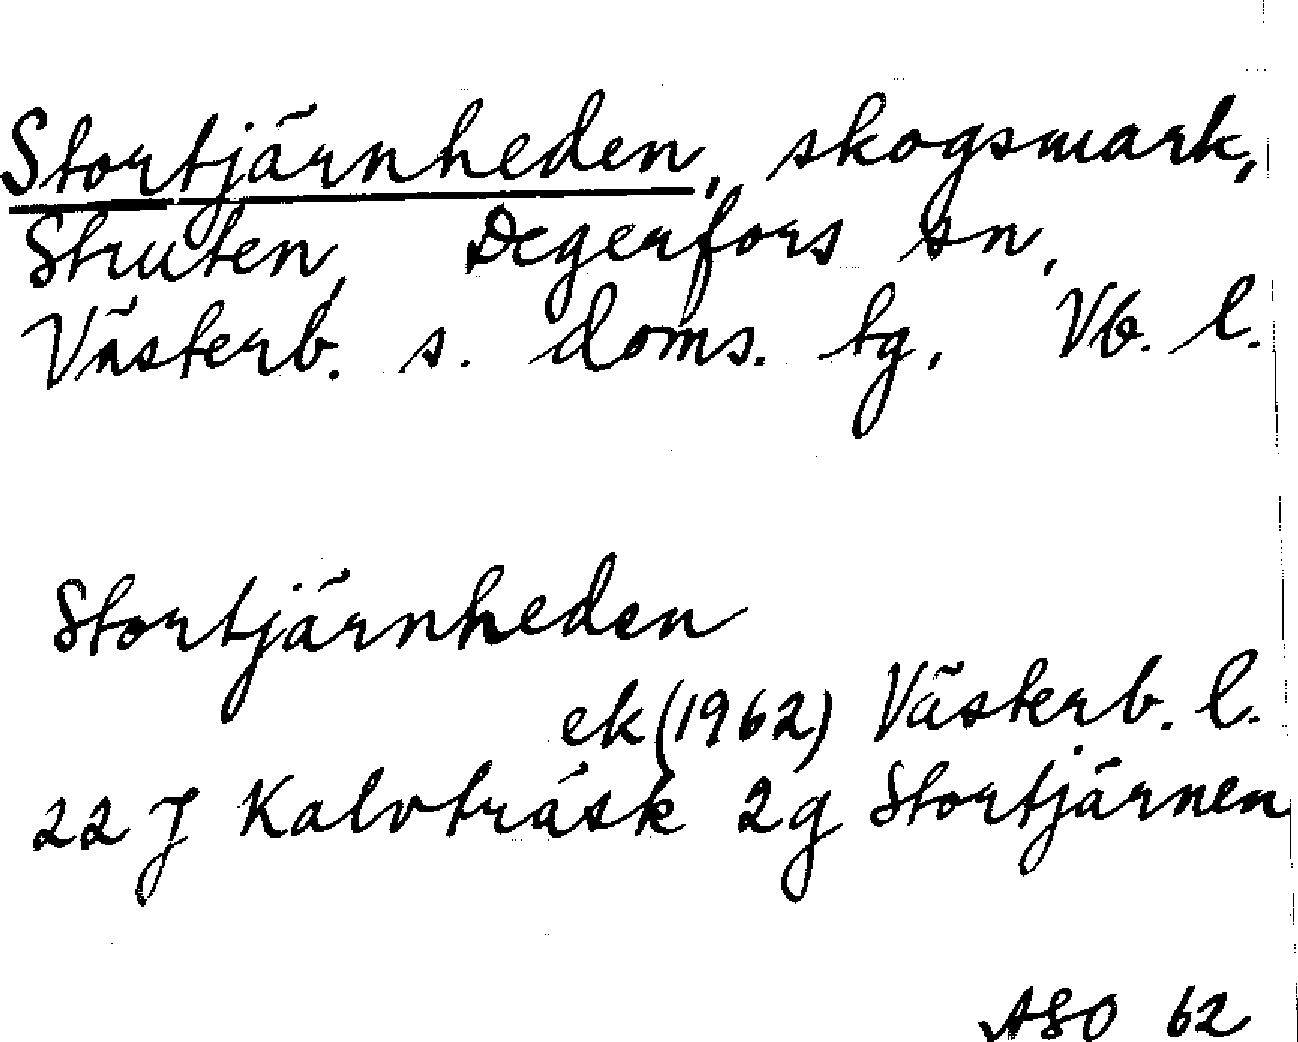 Stortjärnheden, skogsmark,
Struten, Degerfors sn,
Västerb. s. doms. tg, Vb. l.
Stortjärnheden
ek (1962) Västerb. l.
22 J Kalvträsk 2g Stortjärnen
ASO 62